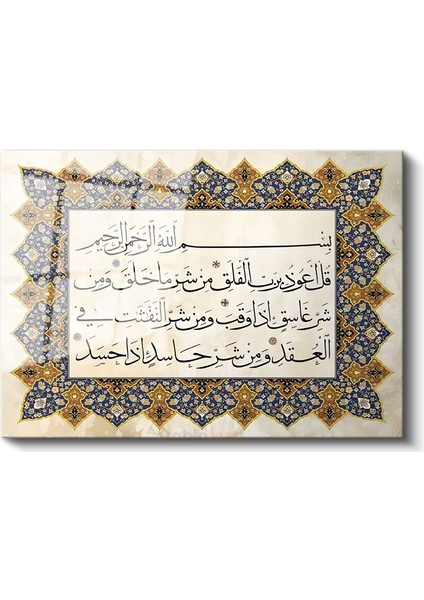 بِسْمِ اللَّهِ الرَّحْمَٰنِ الرَّحِيمِ
قُلْ أَعُوذُ بِرَبِّ الْفَلَقِ مِن شَرِّ مَا خَلَقَ وَمِن
شَرِّ غَاسِقٍ إِذَا وَقَبَ وَمِن شَرِّ النَّفَّٰثَٰتِ فِي
الْعُقَدِ وَمِن شَرِّ حَاسِدٍ إِذَا حَسَدَ